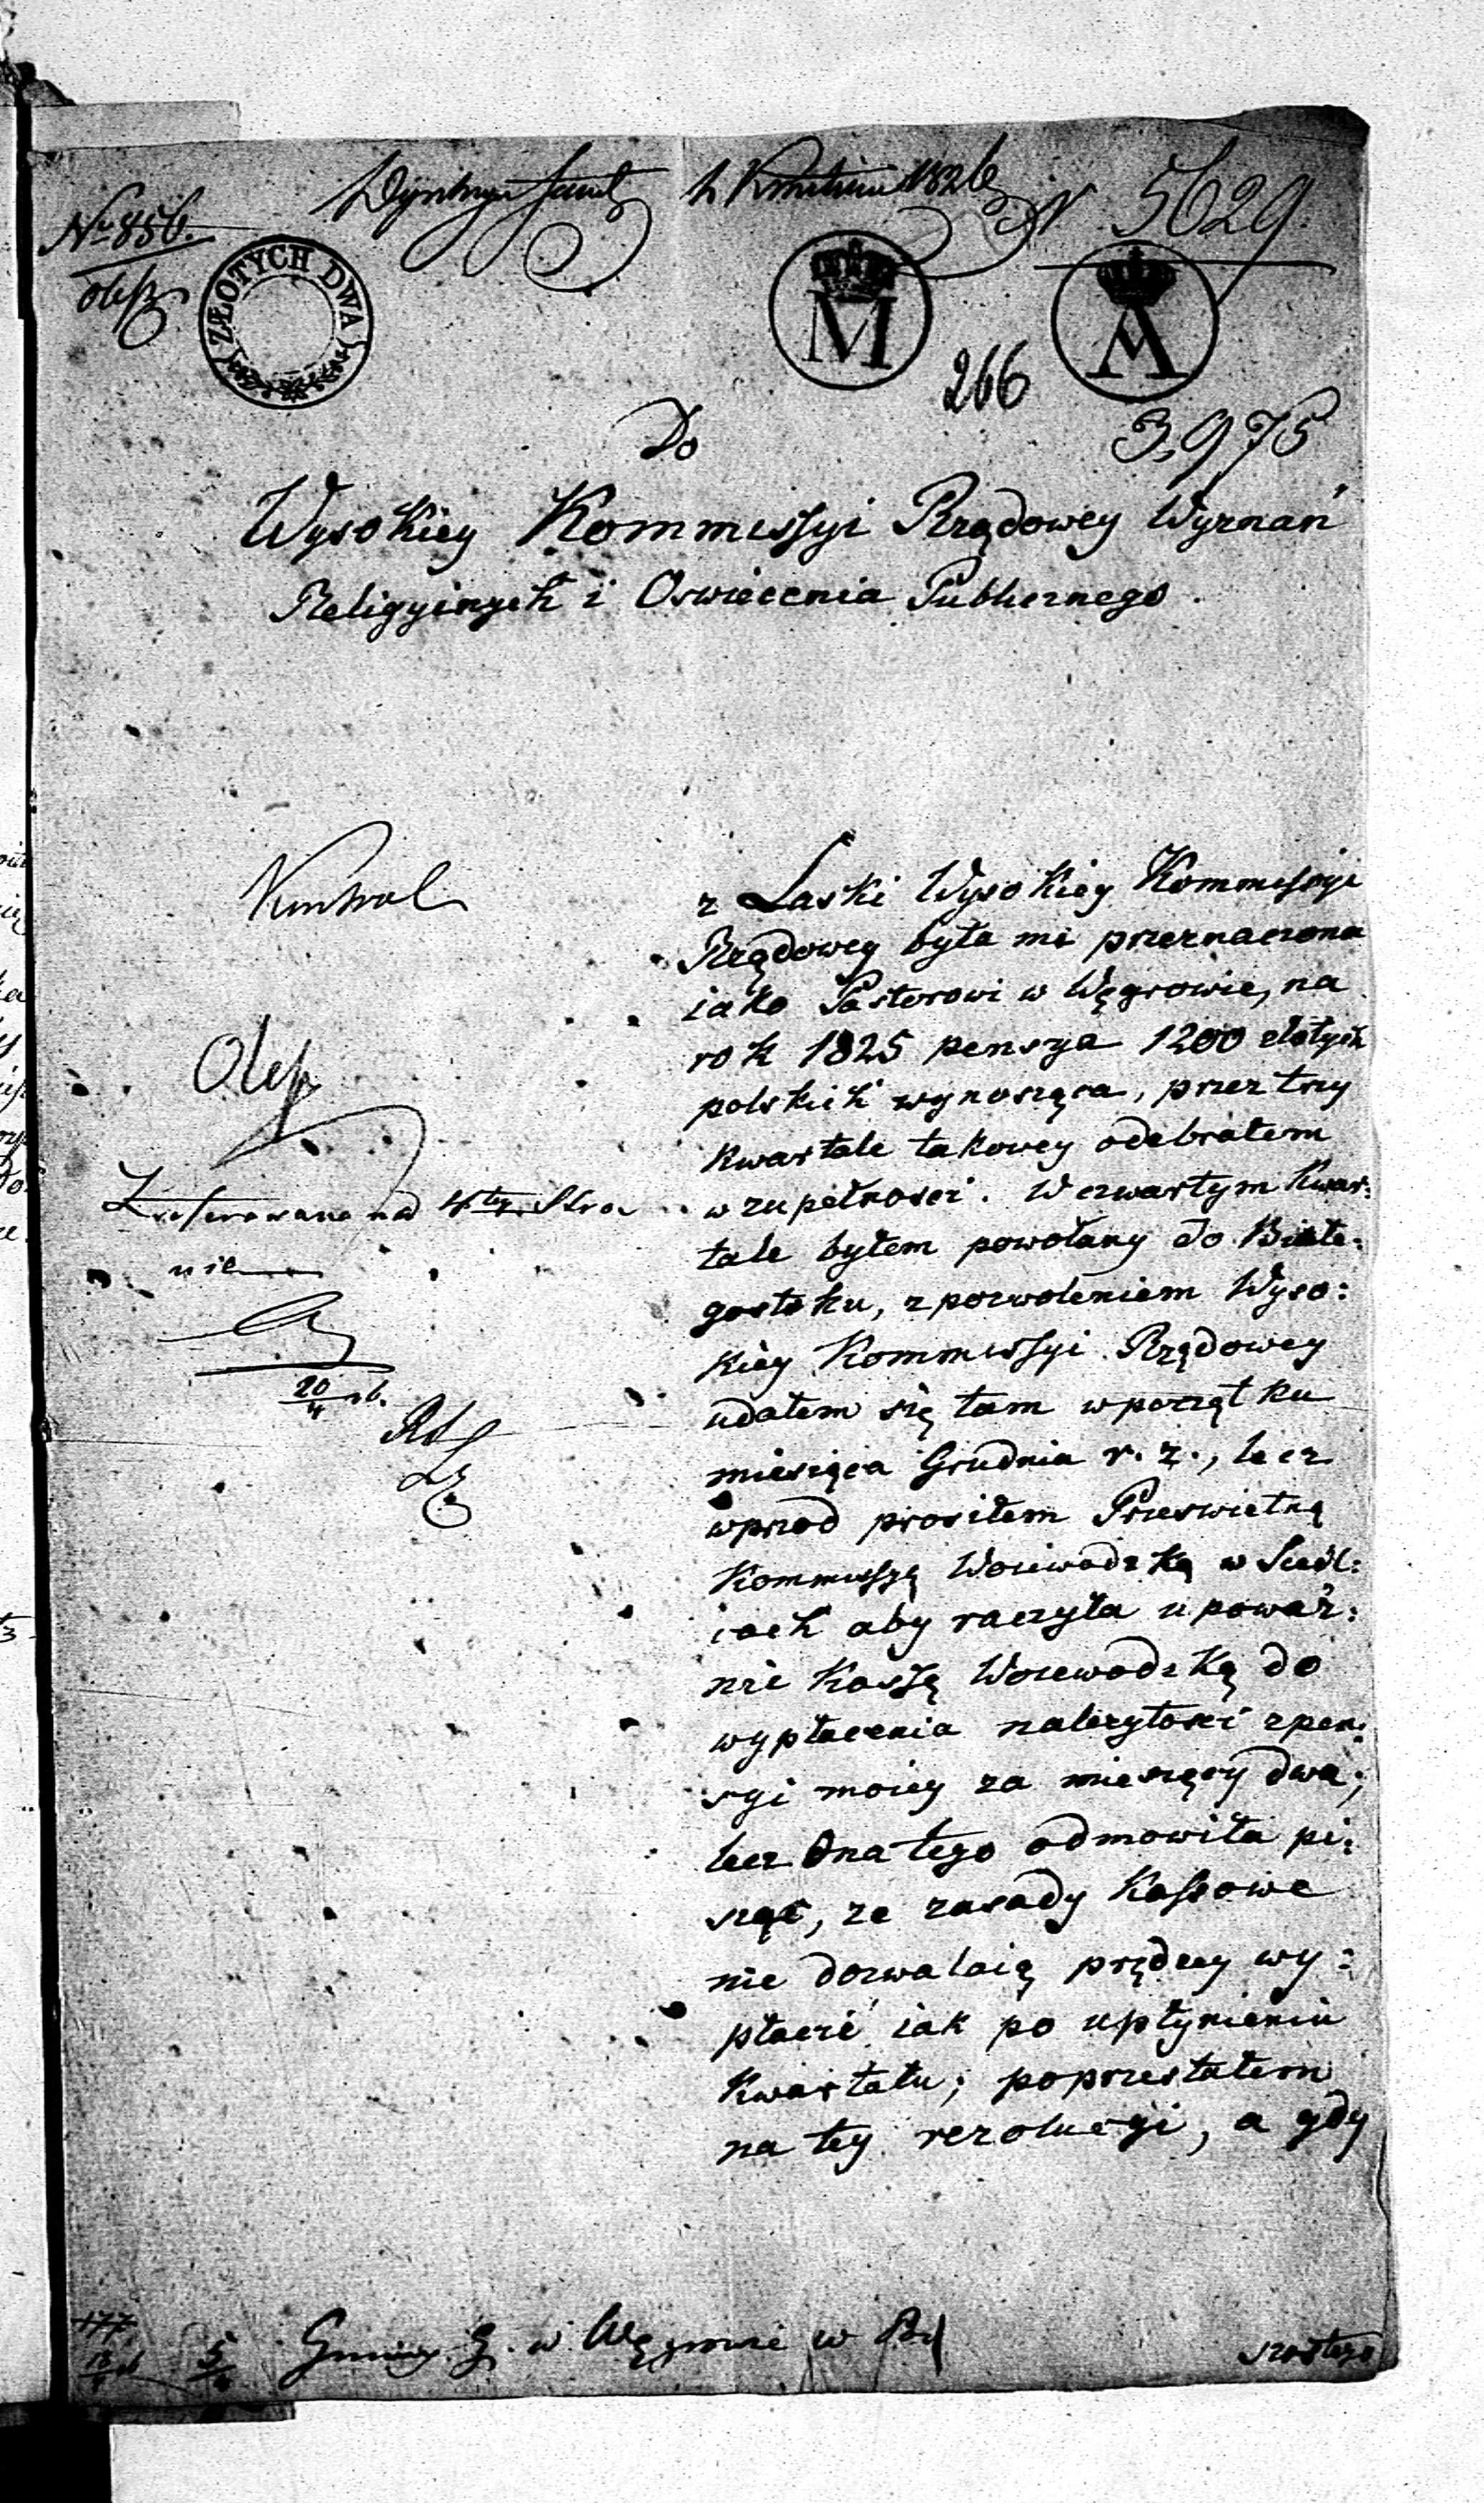 Kwietnia 1826
N 5629.
No 856.
ZŁOTYCH DWA
M
A
266
3,975
Do
Wysokiey Kommissyi Rządowey Wyznań
Religyinych i Oswiecenia Publicznego.
z Łaski Wysokiey Kommissyi
Rządowey była mi przeznaczona
iako Pastorowi w Węgrowie, na
rok 1825 pensya 1200 złotych
polskich wynosząca, przez trzy
kwartale takowey odebrałem
w zupełnosci. W czwartym kwar:
tale byłem powołany do Białe:
gostoku, z pozwoleniem Wyso:
kiey Kommissyi Rządowey
udałem się tam w początku
miesiąca Grudnia r. z., lecz
wprzod prosiłem Prześwietną
Kommissyą Woiewodzką w Siedl:
cach aby raczyła upoważ:
nić Kassę Woiewodzką do
wypłacenia należytosci z pen:
syi moiey za miesięcy dwa;
lecz Ona tego odmowiła pi:
sząc, ze zasady Kassowe
nie dozwalaią prędzey wy:
płacić iak po upłynieniu
Kwartału; poprzestałem
na tey rezolucyi, a gdy
Kontrol
na 4tey Stro
nie
20/4
w Węgrowie w
5